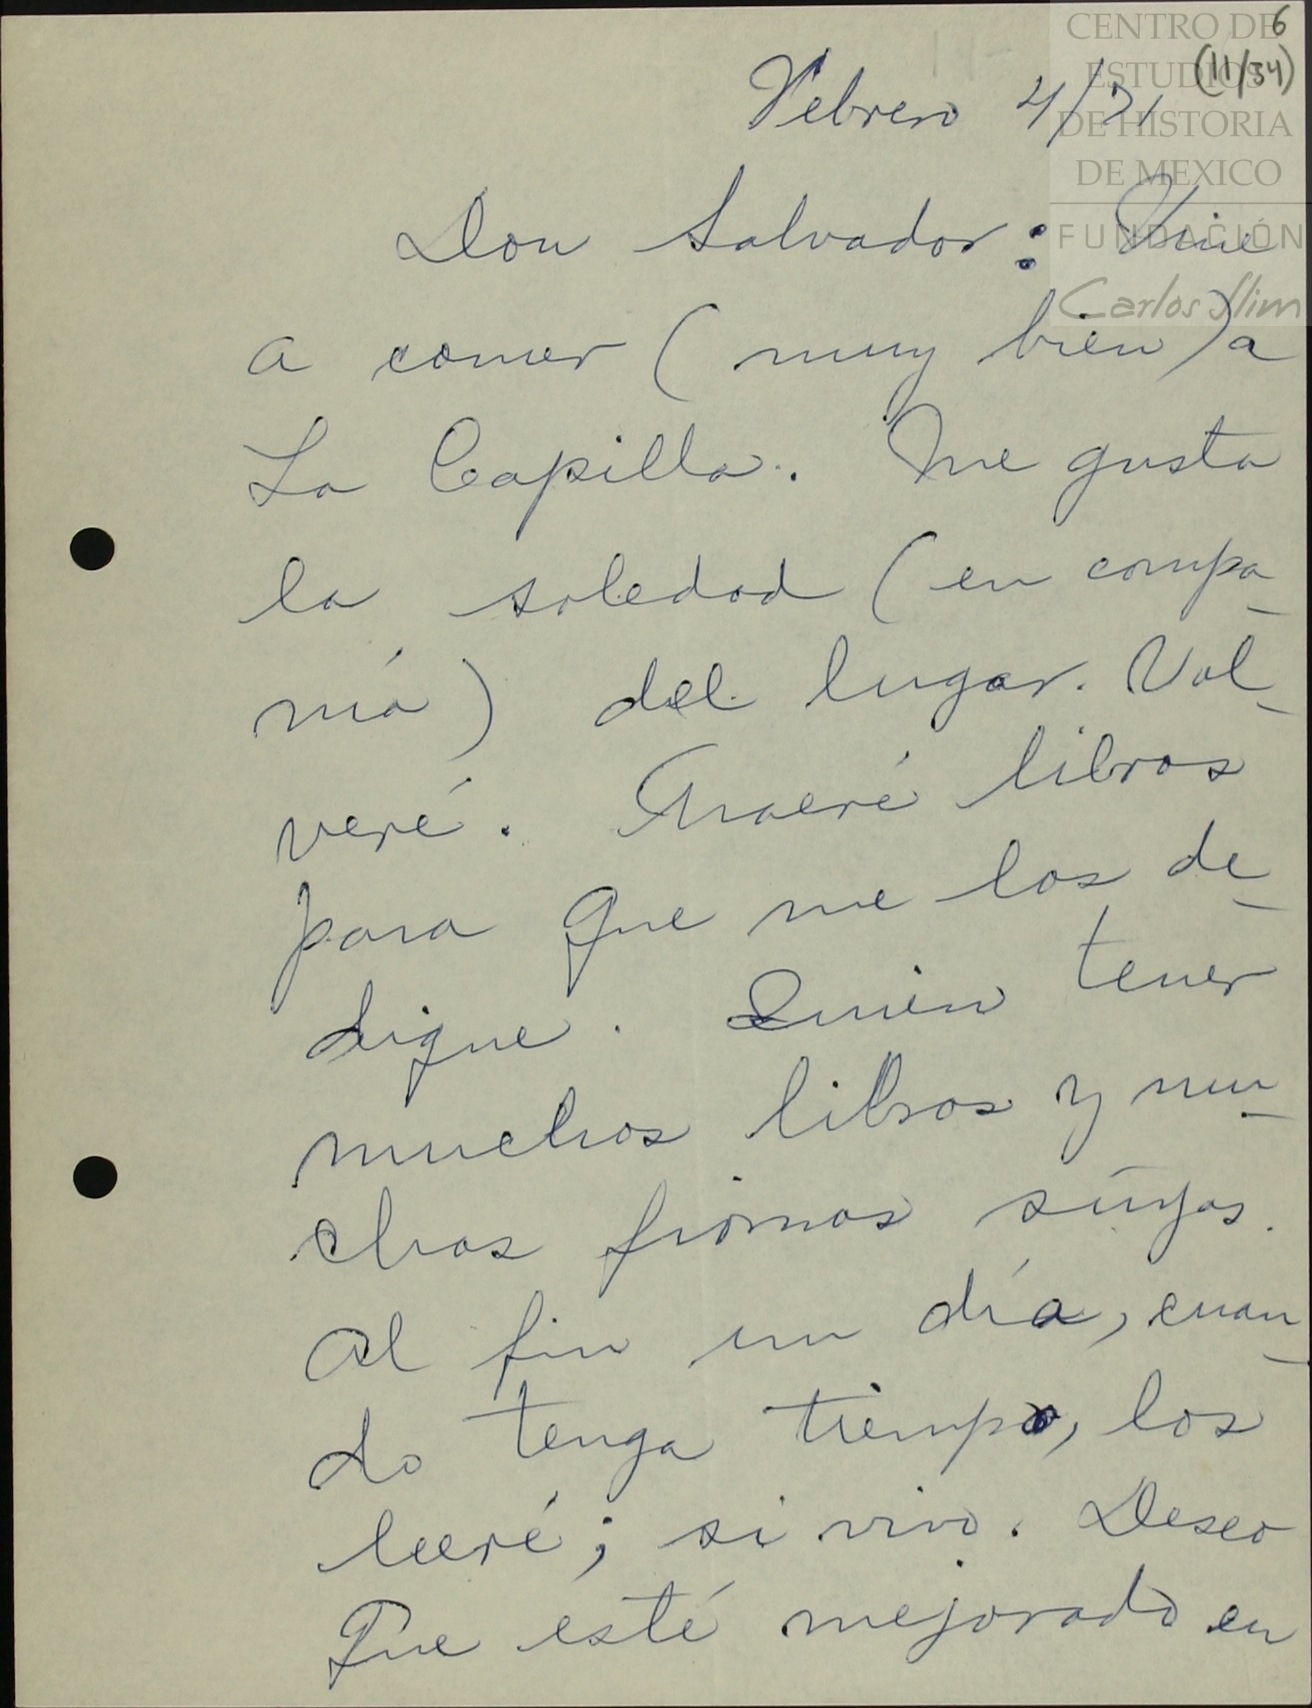 6
(11/34)
CENTRO DE
ESTUDIOS
DE HISTORIA
DE MEXICO
FUNDACIÓN
Carlos Slim
Febrero 4/71
Don Salvador: Vine
a comer (muy bien) a
La Capilla. Me gusta
la soledad (en compa-
ñía) del lugar. Vol-
veré. Traeré libros
para que me los de-
dique. Quiero tener
muchos libros y mu-
chas firmas suyas.
Al fin un día, cuan-
do tenga tiempo, los
leeré; si vivo. Deseo
que esté mejorado en